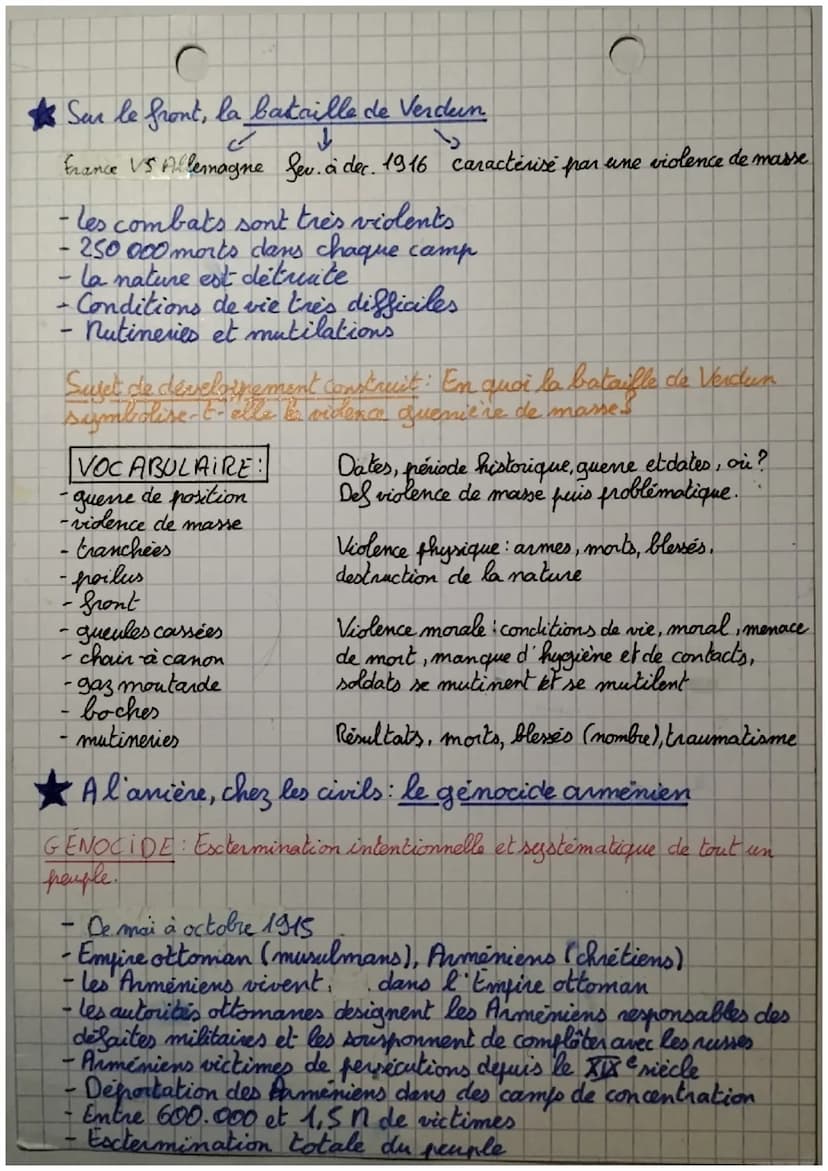 ★ Sur le front, la bataille de Verdun
France VS Allemagne fev. à dec. 1916 caractérisé par une violence de masse
- les combats sont très violents
- 250 000 morts dans chaque camp
- la nature est détruite
- Conditions de vie très difficiles
- Mutineries et mutilations
Sujet de développement construit : En quoi la bataille de Verdun
symbolise-t-elle la violence guerrière de masse ?
VOCABULAIRE :
- guerre de position
- violence de masse
- tranchées
- poilus
- front
- gueules cassées
- chair à canon
- gaz moutarde
- boches
- mutineries
Dates, période historique, guerre et dates, où ?
Def violence de masse puis problématique.
Violence physique : armes, morts, blessés,
destruction de la nature
Violence morale : conditions de vie, moral, menace
de mort, manque d'hygiène et de contacts,
soldats se mutinent et se mutilent
Résultats, morts, blessés (nombre), traumatisme
★ A l'arrière, chez les civils : le génocide arménien
GÉNOCIDE : Extermination intentionnelle et systématique de tout un
peuple.
- De mai à octobre 1915
- Empire ottoman (musulmans), Arméniens (chrétiens)
- Les Arméniens vivent dans l'Empire ottoman
- Les autorités ottomanes designent les Arméniens responsables des
défaites militaires et les soupsonnent de complôter avec les russes
- Arméniens victimes de persécutions depuis le XIXe siècle
- Déportation des Arméniens dans des camps de concentration
- Entre 600.000 et 1,5 M de victimes
- Extermination totale du peuple